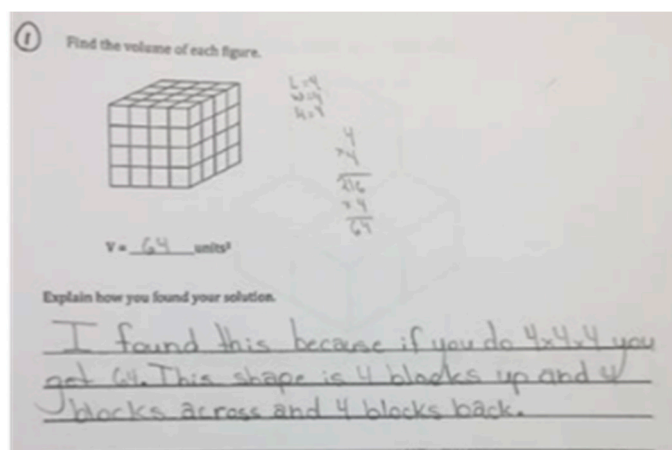 1
Find the volume of each figure.
x 4
64
V = 64 units³
Explain how you found your solution.
I found this because if you do 4x4x4 you
get 64. This shape is 4 blocks up and 4
blocks across and 4 blocks back.